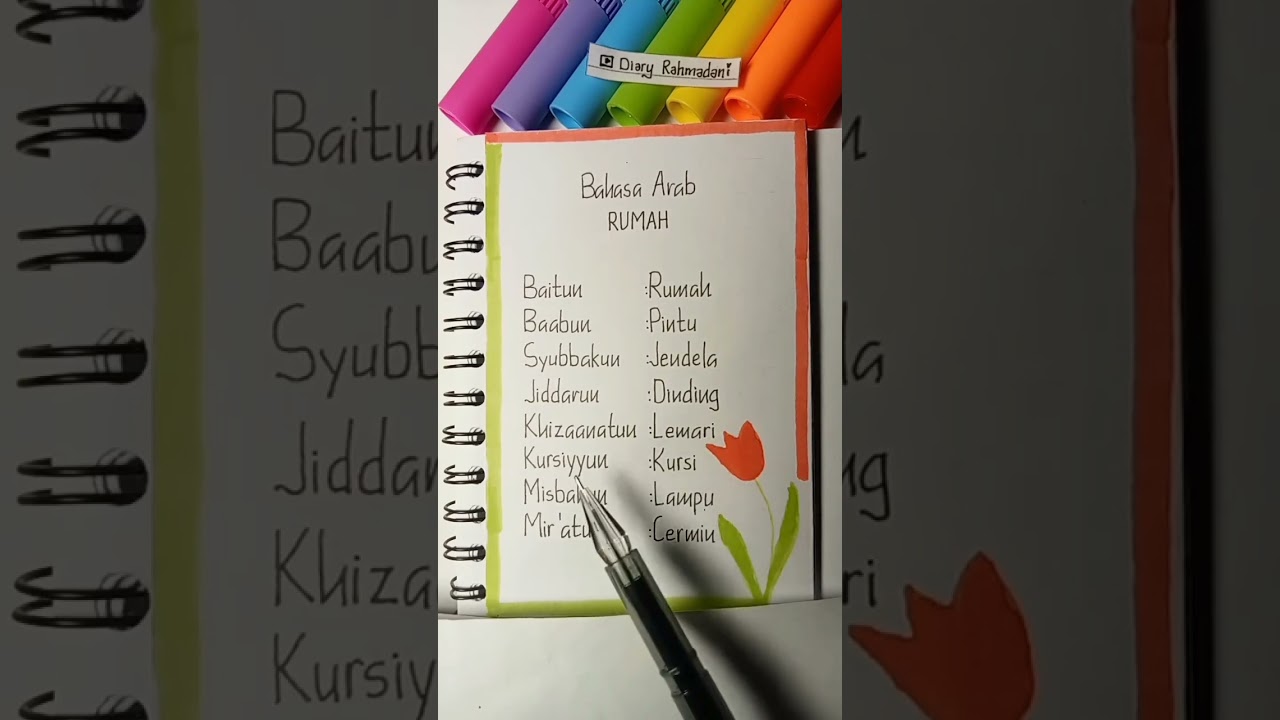 Diary Rahmadani
Bahasa Arab
RUMAH
Baitun :Rumah
Baabun :Pintu
Syubbakun :Jendela
Jiddarun :Dinding
Khizaanatun :Lemari
Kursiyyun :Kursi
:Lampu
:Cermin